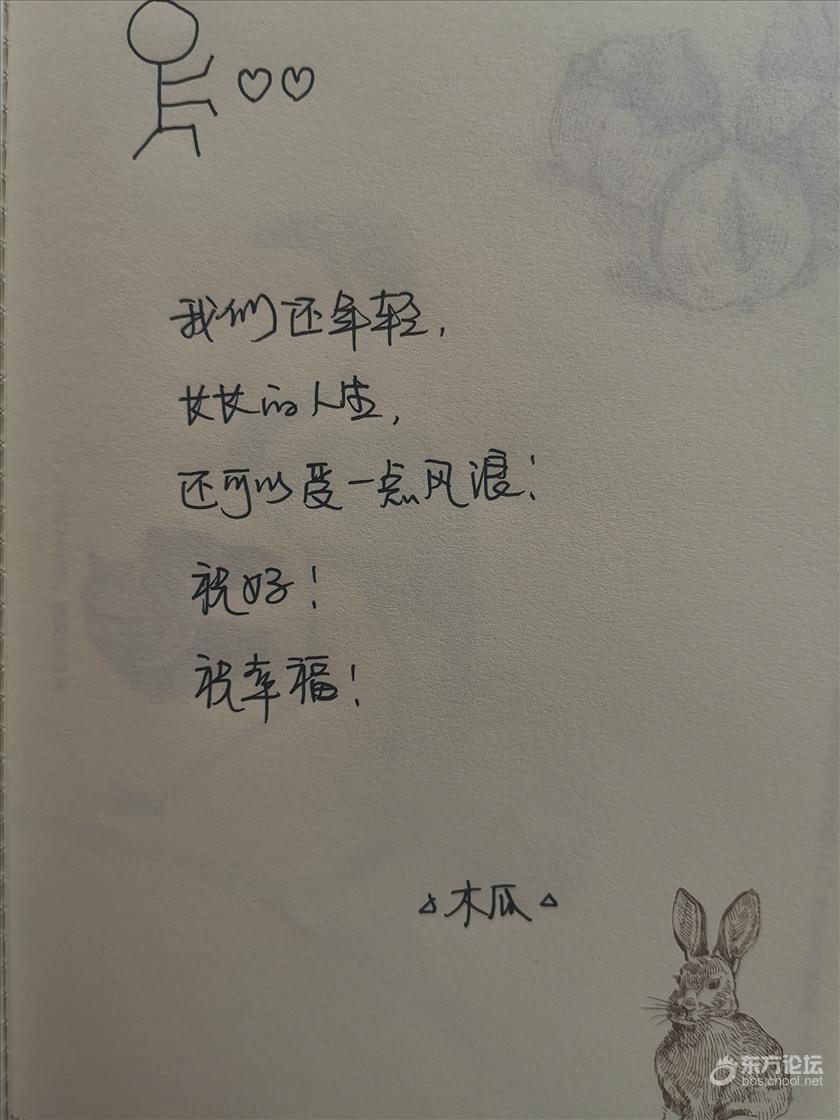 我们还年轻,
长长的人生,
还可以受一点风浪!
祝好!
祝幸福!
木瓜
东方论坛
bbs.cnool.net